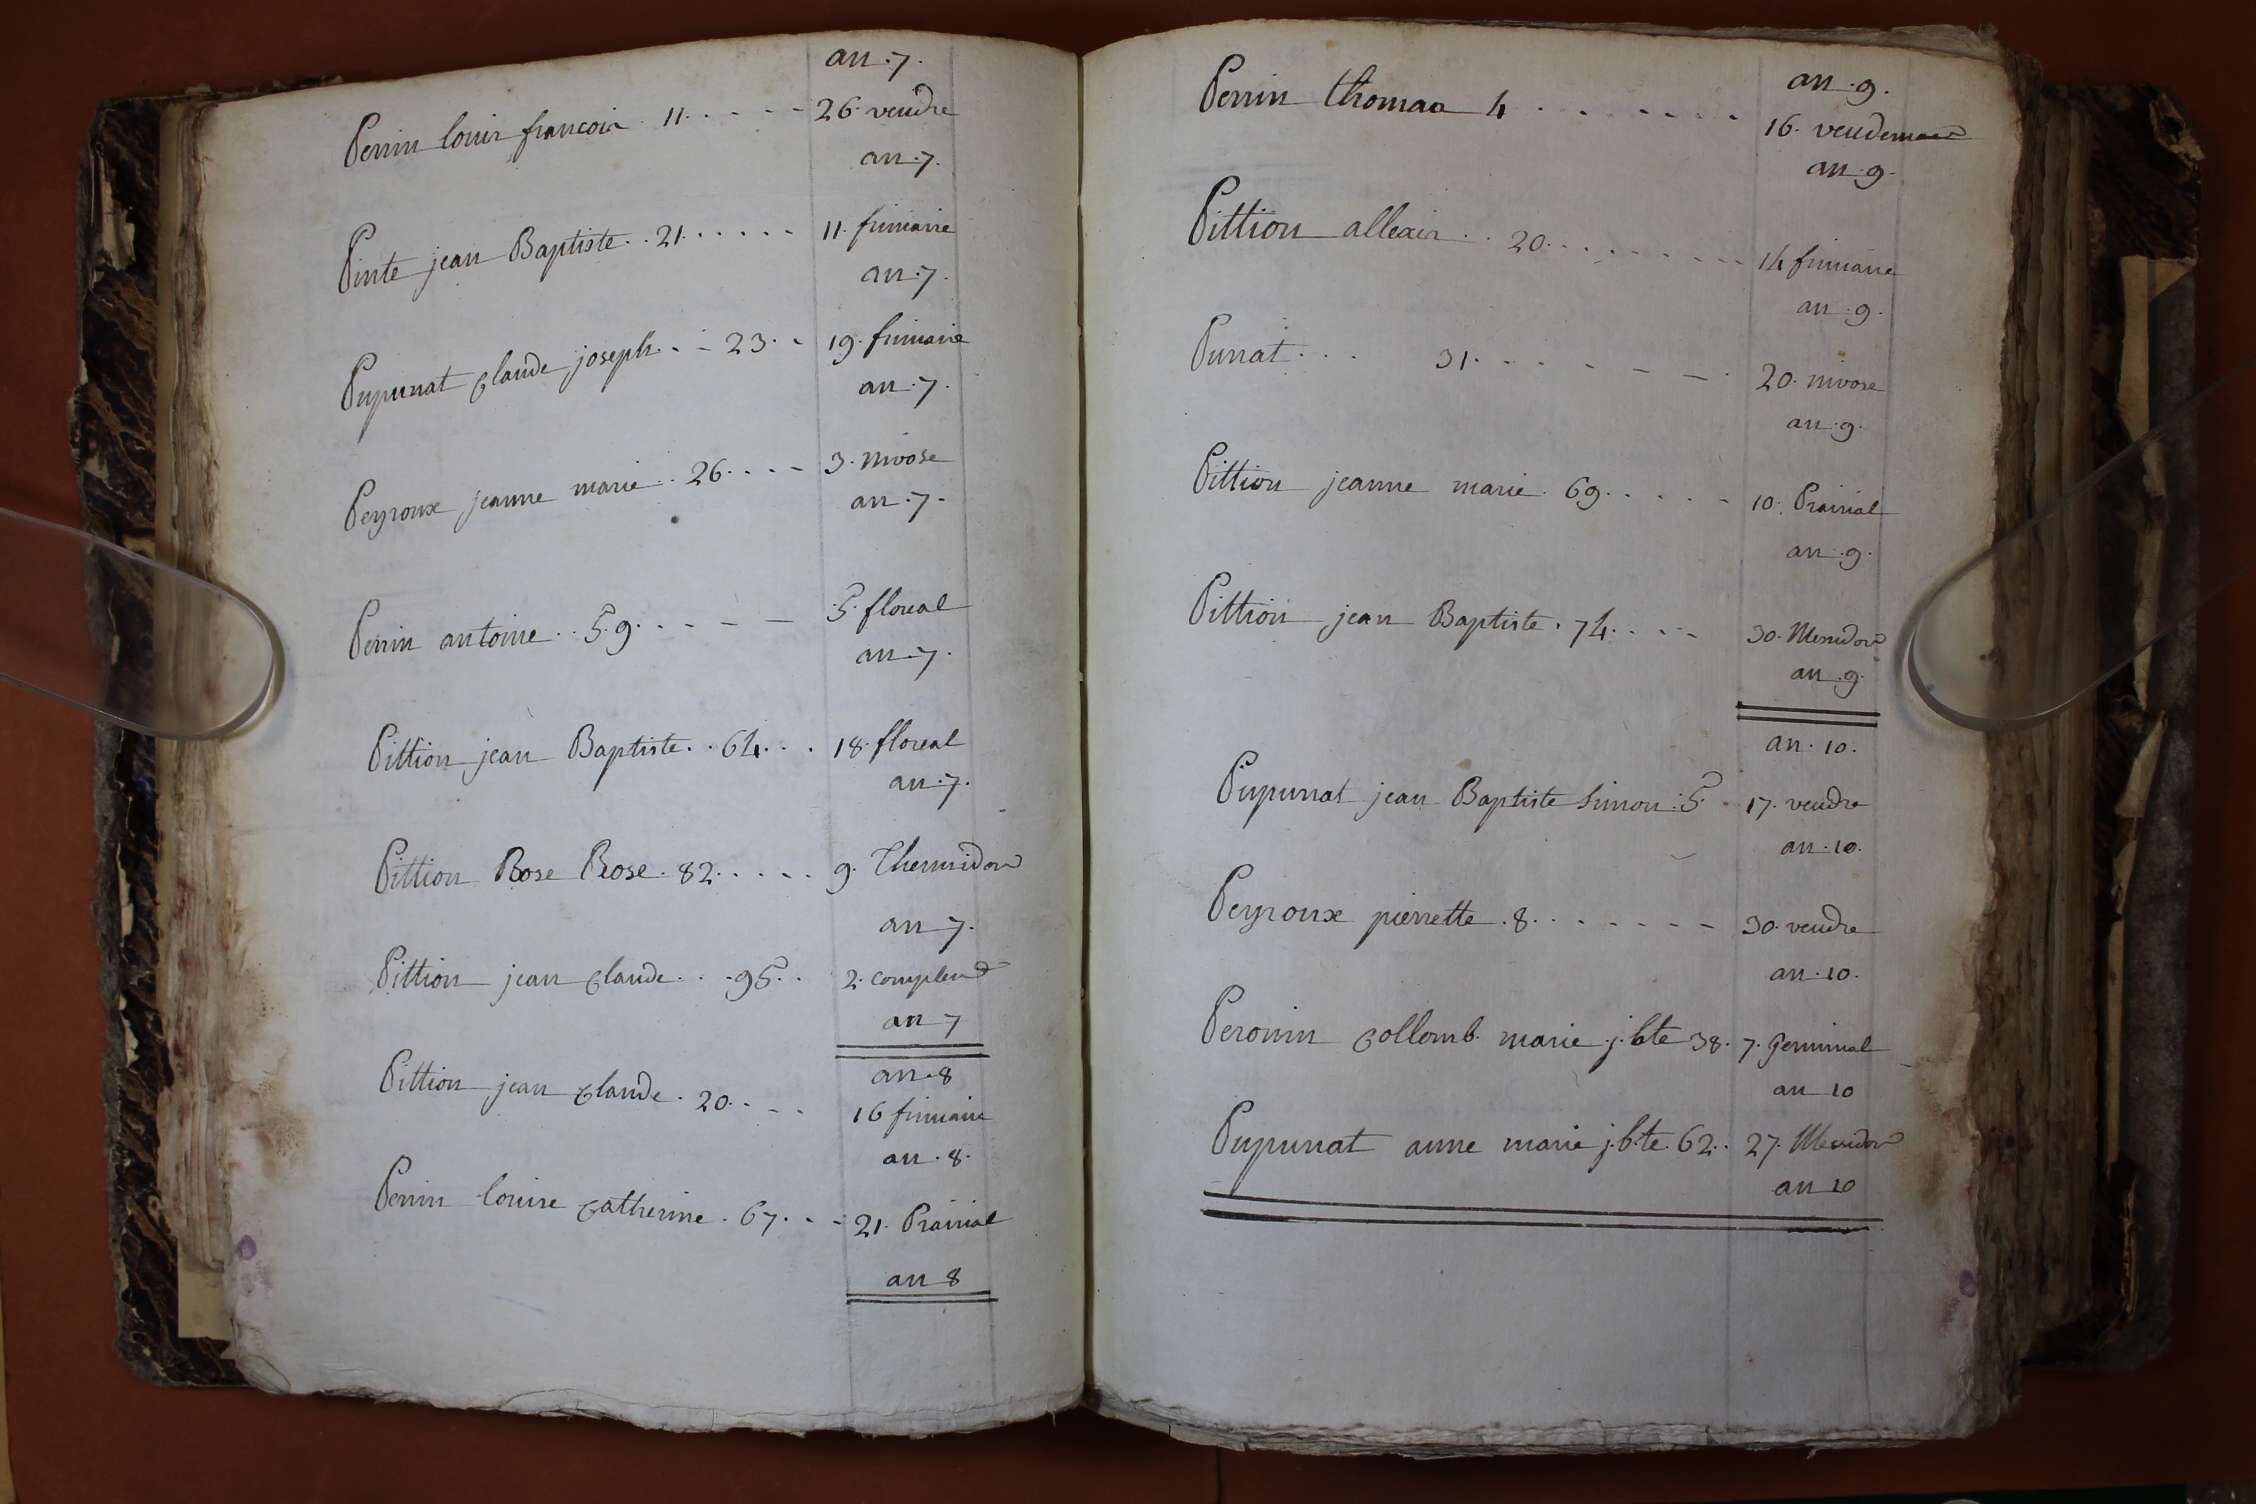 an .7.
Perrin louis francois 11 . . . . 26. vendre
an .7.
Pinte jean Baptiste . . 21 . . . . . 11. frimaire
an .7.
Pupunat Claude joseph . . 23 . . 19. frimaire
an .7.
Peyroux jeanne marie . . 26 . . . . 3. nivose
an .7.
Perrin antoine . . 59 . . . . 5. floreal
an .7.
Pittion jean Baptiste . . 64 . . . 18. floreal
an .7.
Pittion Rose Rose . 82 . . . . . 9. Thermidor
an 7.
Pittion jean Claude . . . 95 . . 2. complem
an 7
an .8
Pittion jean Claude . 20 . . . . 16 frimaire
an .8.
Perrin louise Catherine . 67 . . . 21. Prairial
an 8
an .9.
Perrin thomas 4 . . . . . . . 16. vendemair
an .9.
Pittion allexis . . 20 . . . . . . . . 14 frimaire
an .9.
Punat . . . 31 . . . . . . . 20. nivose
an .9.
Pittion jeanne marie . 69 . . . . . 10. Prairial
an .9.
Pittion jean Baptiste . 74 . . . . 30. Messidor
an .9.
an .10.
Pupunat jean Baptiste simon . 5 . 17. vendre
an .10.
Peyroux pierrette . 8 . . . . . . . 30. vendre
an .10.
Peronin Collomb. marie j. bte 38. 7. Germinal
an 10
Pupunat anne marie j. b. te. 62 . . 27. Messidor
an 10